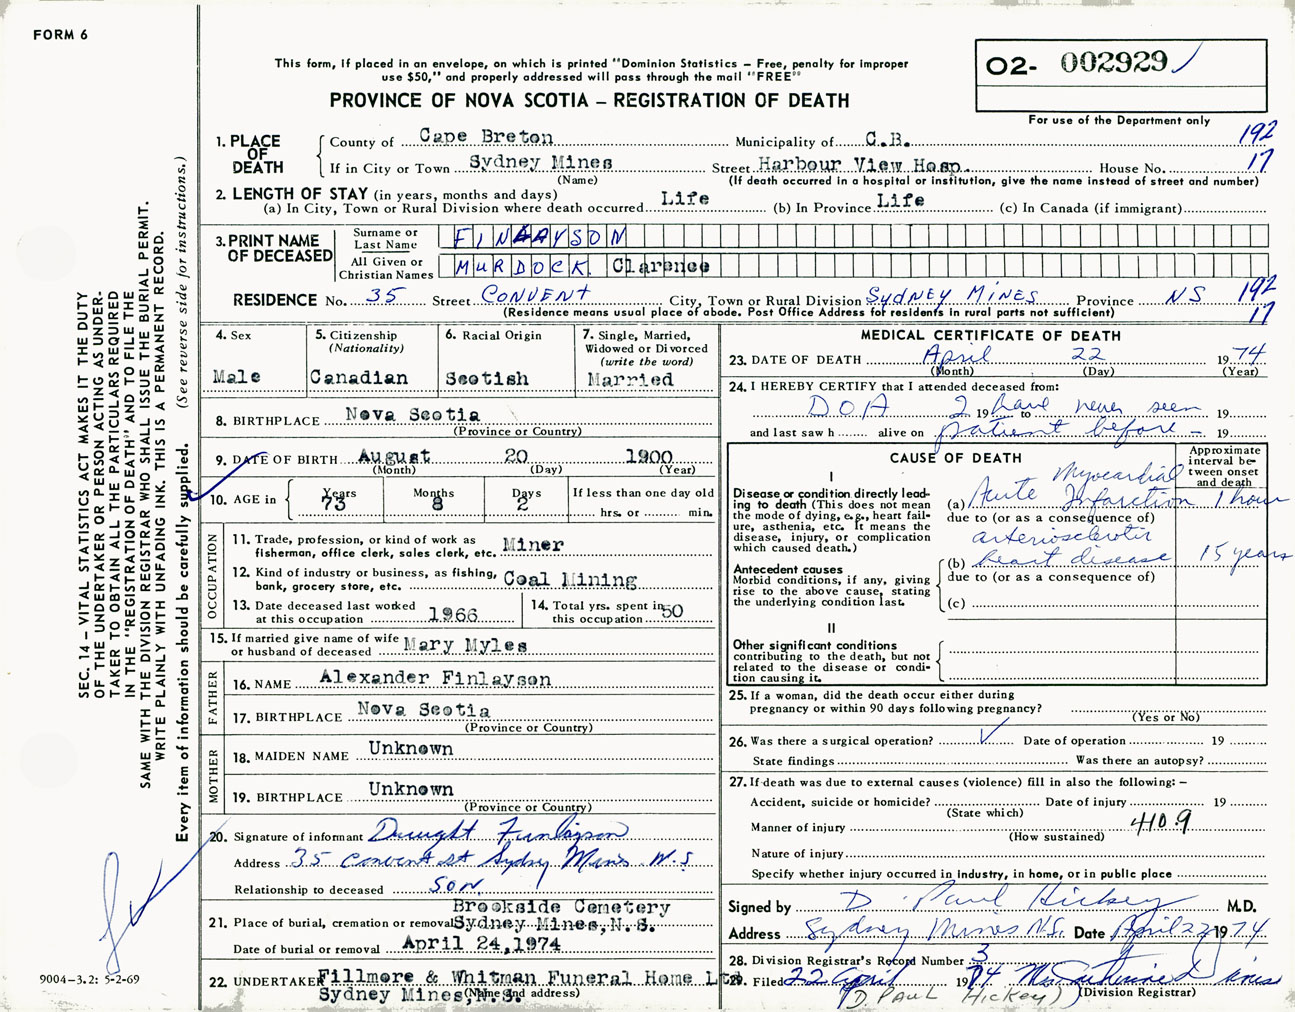 FORM 6
This form, if placed in an envelope, on which is printed "Dominion Statistics – Free, penalty for improper
use $50," and properly addressed will pass through the mail "FREE"
PROVINCE OF NOVA SCOTIA – REGISTRATION OF DEATH
02- 002929
For use of the Department only
1. PLACE OF DEATH
County of Cape Breton Municipality of C.B. 192
If in City or Town Sydney Mines Street Harbour View Hosp. House No. 17
(Name) (If death occurred in a hospital or institution, give the name instead of street and number)
2. LENGTH OF STAY (in years, months and days)
(a) In City, Town or Rural Division where death occurred Life (b) In Province Life (c) In Canada (if immigrant)
3. PRINT NAME OF DECEASED
Surname or Last Name FINLAYSON
All Given or Christian Names MURDOCK. Clarence
RESIDENCE No. 35 Street CONVENT City, Town or Rural Division SYDNEY MINES Province NS 192
(Residence means usual place of abode. Post Office Address for residents in rural parts not sufficient) 17
4. Sex
Male
5. Citizenship
(Nationality)
Canadian
6. Racial Origin
Scotish
7. Single, Married,
Widowed or Divorced
(write the word)
Married
8. BIRTHPLACE Nova Scotia
(Province or Country)
9. DATE OF BIRTH August 20 1900
(Month) (Day) (Year)
10. AGE in Years 73 Months 8 Days 2 If less than one day old
hrs. or min.
OCCUPATION
11. Trade, profession, or kind of work as
fisherman, office clerk, sales clerk, etc. Miner
12. Kind of industry or business, as fishing,
bank, grocery store, etc. Coal Mining
13. Date deceased last worked
at this occupation 1966
14. Total yrs. spent in
this occupation 50
15. If married give name of wife
or husband of deceased Mary Myles
FATHER
16. NAME Alexander Finlayson
17. BIRTHPLACE Nova Scotia
(Province or Country)
MOTHER
18. MAIDEN NAME Unknown
19. BIRTHPLACE Unknown
(Province or Country)
20. Signature of informant Dwight Finlayson
Address 35 Convent st Sydney Mines N.S
Relationship to deceased SON
21. Place of burial, cremation or removal Brookside Cemetery
Sydney Mines, N.S.
Date of burial or removal April 24, 1974
22. UNDERTAKER Fillmore & Whitman Funeral Home Ltd.
Sydney Mines, N.S.
(Name and address)
MEDICAL CERTIFICATE OF DEATH
23. DATE OF DEATH April 22 1974
(Month) (Day) (Year)
24. I HEREBY CERTIFY that I attended deceased from:
DOA I 19 have to never seen 19
and last saw h alive on patient before – 19
CAUSE OF DEATH
Approximate interval between onset and death
I
Disease or condition directly leading to death (This does not mean the mode of dying, e.g., heart failure, asthenia, etc. It means the disease, injury, or complication which caused death.)
(a) Acute Myocardial Infarction 1 hour
due to (or as a consequence of)
arteriosclerotic
(b) heart disease 15 years
due to (or as a consequence of)
(c)
Antecedent causes
Morbid conditions, if any, giving
rise to the above cause, stating
the underlying condition last.
II
Other significant conditions
contributing to the death, but not
related to the disease or condi-
tion causing it.
25. If a woman, did the death occur either during
pregnancy or within 90 days following pregnancy?
(Yes or No)
26. Was there a surgical operation? Date of operation 19
State findings Was there an autopsy?
27. If death was due to external causes (violence) fill in also the following: –
Accident, suicide or homicide? Date of injury 19
(State which)
Manner of injury 410.9
(How sustained)
Nature of injury
Specify whether injury occurred in industry, in home, or in public place
Signed by D. Paul Hickey M.D.
Address Sydney Mines N.S. Date April 22 1974
28. Division Registrar's Record Number 3
29. Filed 22 April 1974
(D. PAUL HICKEY) (Division Registrar)
SEC. 14 – VITAL STATISTICS ACT MAKES IT THE DUTY
OF THE UNDERTAKER OR PERSON ACTING AS UNDER-
TAKER TO OBTAIN ALL THE PARTICULARS REQUIRED
IN THE "REGISTRATION OF DEATH" AND TO FILE THE
SAME WITH THE DIVISION REGISTRAR WHO SHALL ISSUE THE BURIAL PERMIT.
WRITE PLAINLY WITH UNFADING INK. THIS IS A PERMANENT RECORD.
Every item of information should be carefully supplied. (See reverse side for instructions.)
9004-3.2: 5-2-69